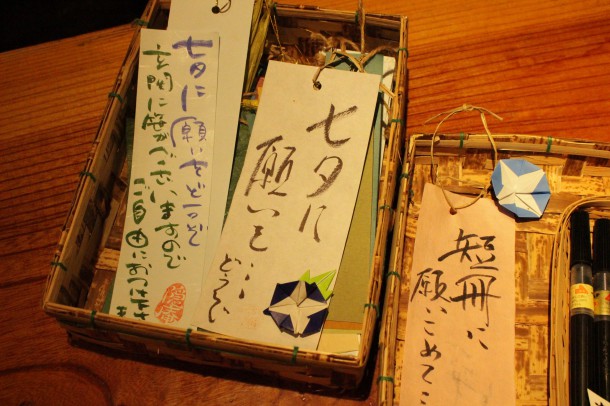 七夕に願いをどうぞ
玄関に笹がございますので
ご自由におつけ下さい
七夕に
願いを…
どうぞ
短冊に
願いこめて…